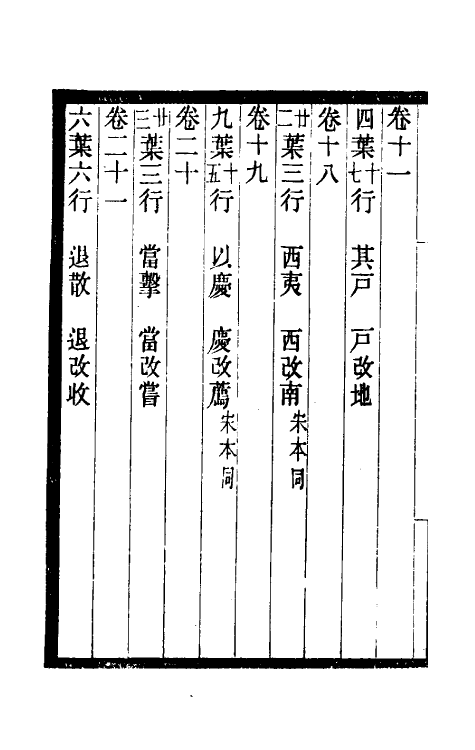 卷十一
四葉十七行　其戸　戸改地
卷十八
廿二葉三行　西夷　西改南宋本同
卷十九
九葉十五行　以慶　慶改薦宋本同
卷二十
廿三葉三行　當擊　當改嘗
卷二十一
六葉六行　退散　退改收